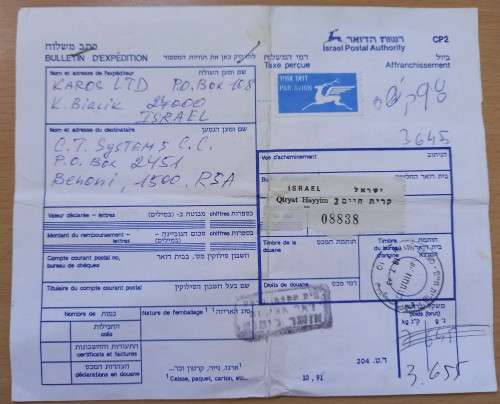 כתב משלוח
BULLETIN D'EXPÉDITION
רשות הדואר
Israel Postal Authority
CP2
דמי המשלוח
Taxe perçue
ביול
Affranchissement
Nom et adresse de l'expéditeur
שם ומען השולח
KAROS LTD P.O.Box 168
K. Bialik 27000
ISRAEL
PAR AVION
3645
Nom et adresse du destinataire
שם ומען הנמען
C.T. SYSTEMS C.C.
P.O. Box 2451
Benoni, 1500. RSA
Voie d'acheminement
הניתוב
ISRAEL
ישראל
Qiryat Hayyim 2
קרית חיים 2
08838
Valeur déclarée - lettres
chiffres
בספרות
Montant du remboursement - lettres
chiffres
בספרות
Compte courant postal no,
bureau de chèques
Titulaire du compte courant postal
Timbre de
la douane
חותמת
המכס
Timbre
du bureau
d'origine
Droits de douane
דמי מכס
Nombre de
כמות
Nature de l'emballage
החבילות
colis
certificats et factures
déclarations en douane
ארגז, נייר, קרטון וכו'...
Caisse, paquet, carton, etc...
poids (brut)
kg
ק"ג
g
ג'
3.655
204
10,91